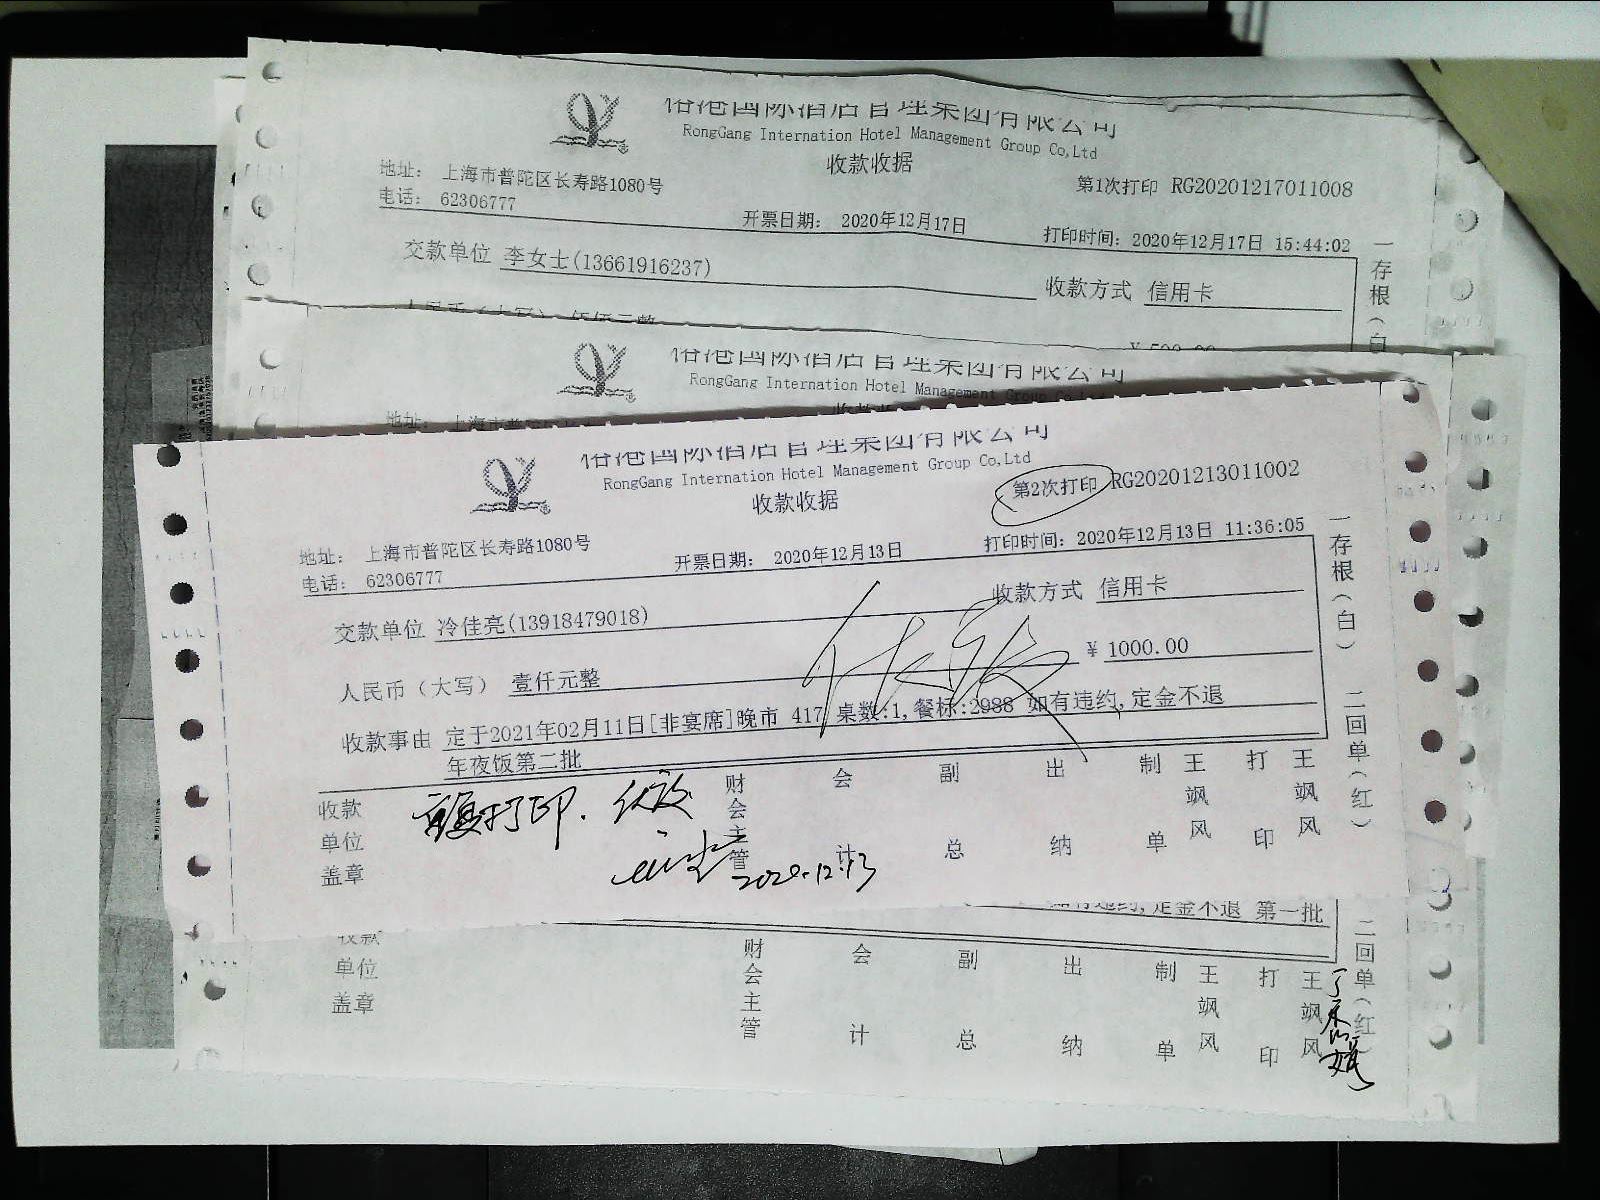 俗港国际酒店管理集团有限公司
RongGang Internation Hotel Management Group Co,Ltd
收款收据
地址： 上海市普陀区长寿路1080号
第1次打印 RG20201217011008
电话： 62306777
开票日期： 2020年12月17日
打印时间：2020年12月17日 15:44:02
交款单位 李女士(13661916237)
收款方式 信用卡
人民币（大写） 伍佰元整
￥500.00
一存根（白
俗港国际酒店管理集团有限公司
RongGang Internation Hotel Management Group Co,Ltd
收款收据
地址： 上海市普陀区长寿
俗港国际酒店管理集团有限公司
RongGang Internation Hotel Management Group Co,Ltd
收款收据
第2次打印 RG20201213011002
地址： 上海市普陀区长寿路1080号
电话： 62306777
开票日期： 2020年12月13日
打印时间：2020年12月13日 11:36:05
交款单位 冷佳亮(13918479018)
收款方式 信用卡
人民币（大写） 壹仟元整
￥ 1000.00
收款事由 定于2021年02月11日[非宴席]晚市 417 桌数:1,餐标:2988 如有违约,定金不退
年夜饭第二批
一存根（白） 二回单（红）
收款单位盖章
财会主管
会计
副总
出纳
制单
王飒风
打印
王飒风
作废
重复打印. 作废
2020.12.13
如有违约,定金不退 第一批
收款单位盖章
财会主管
会计
副总
出纳
制单
王飒风
打印
王飒风
二回单（红）